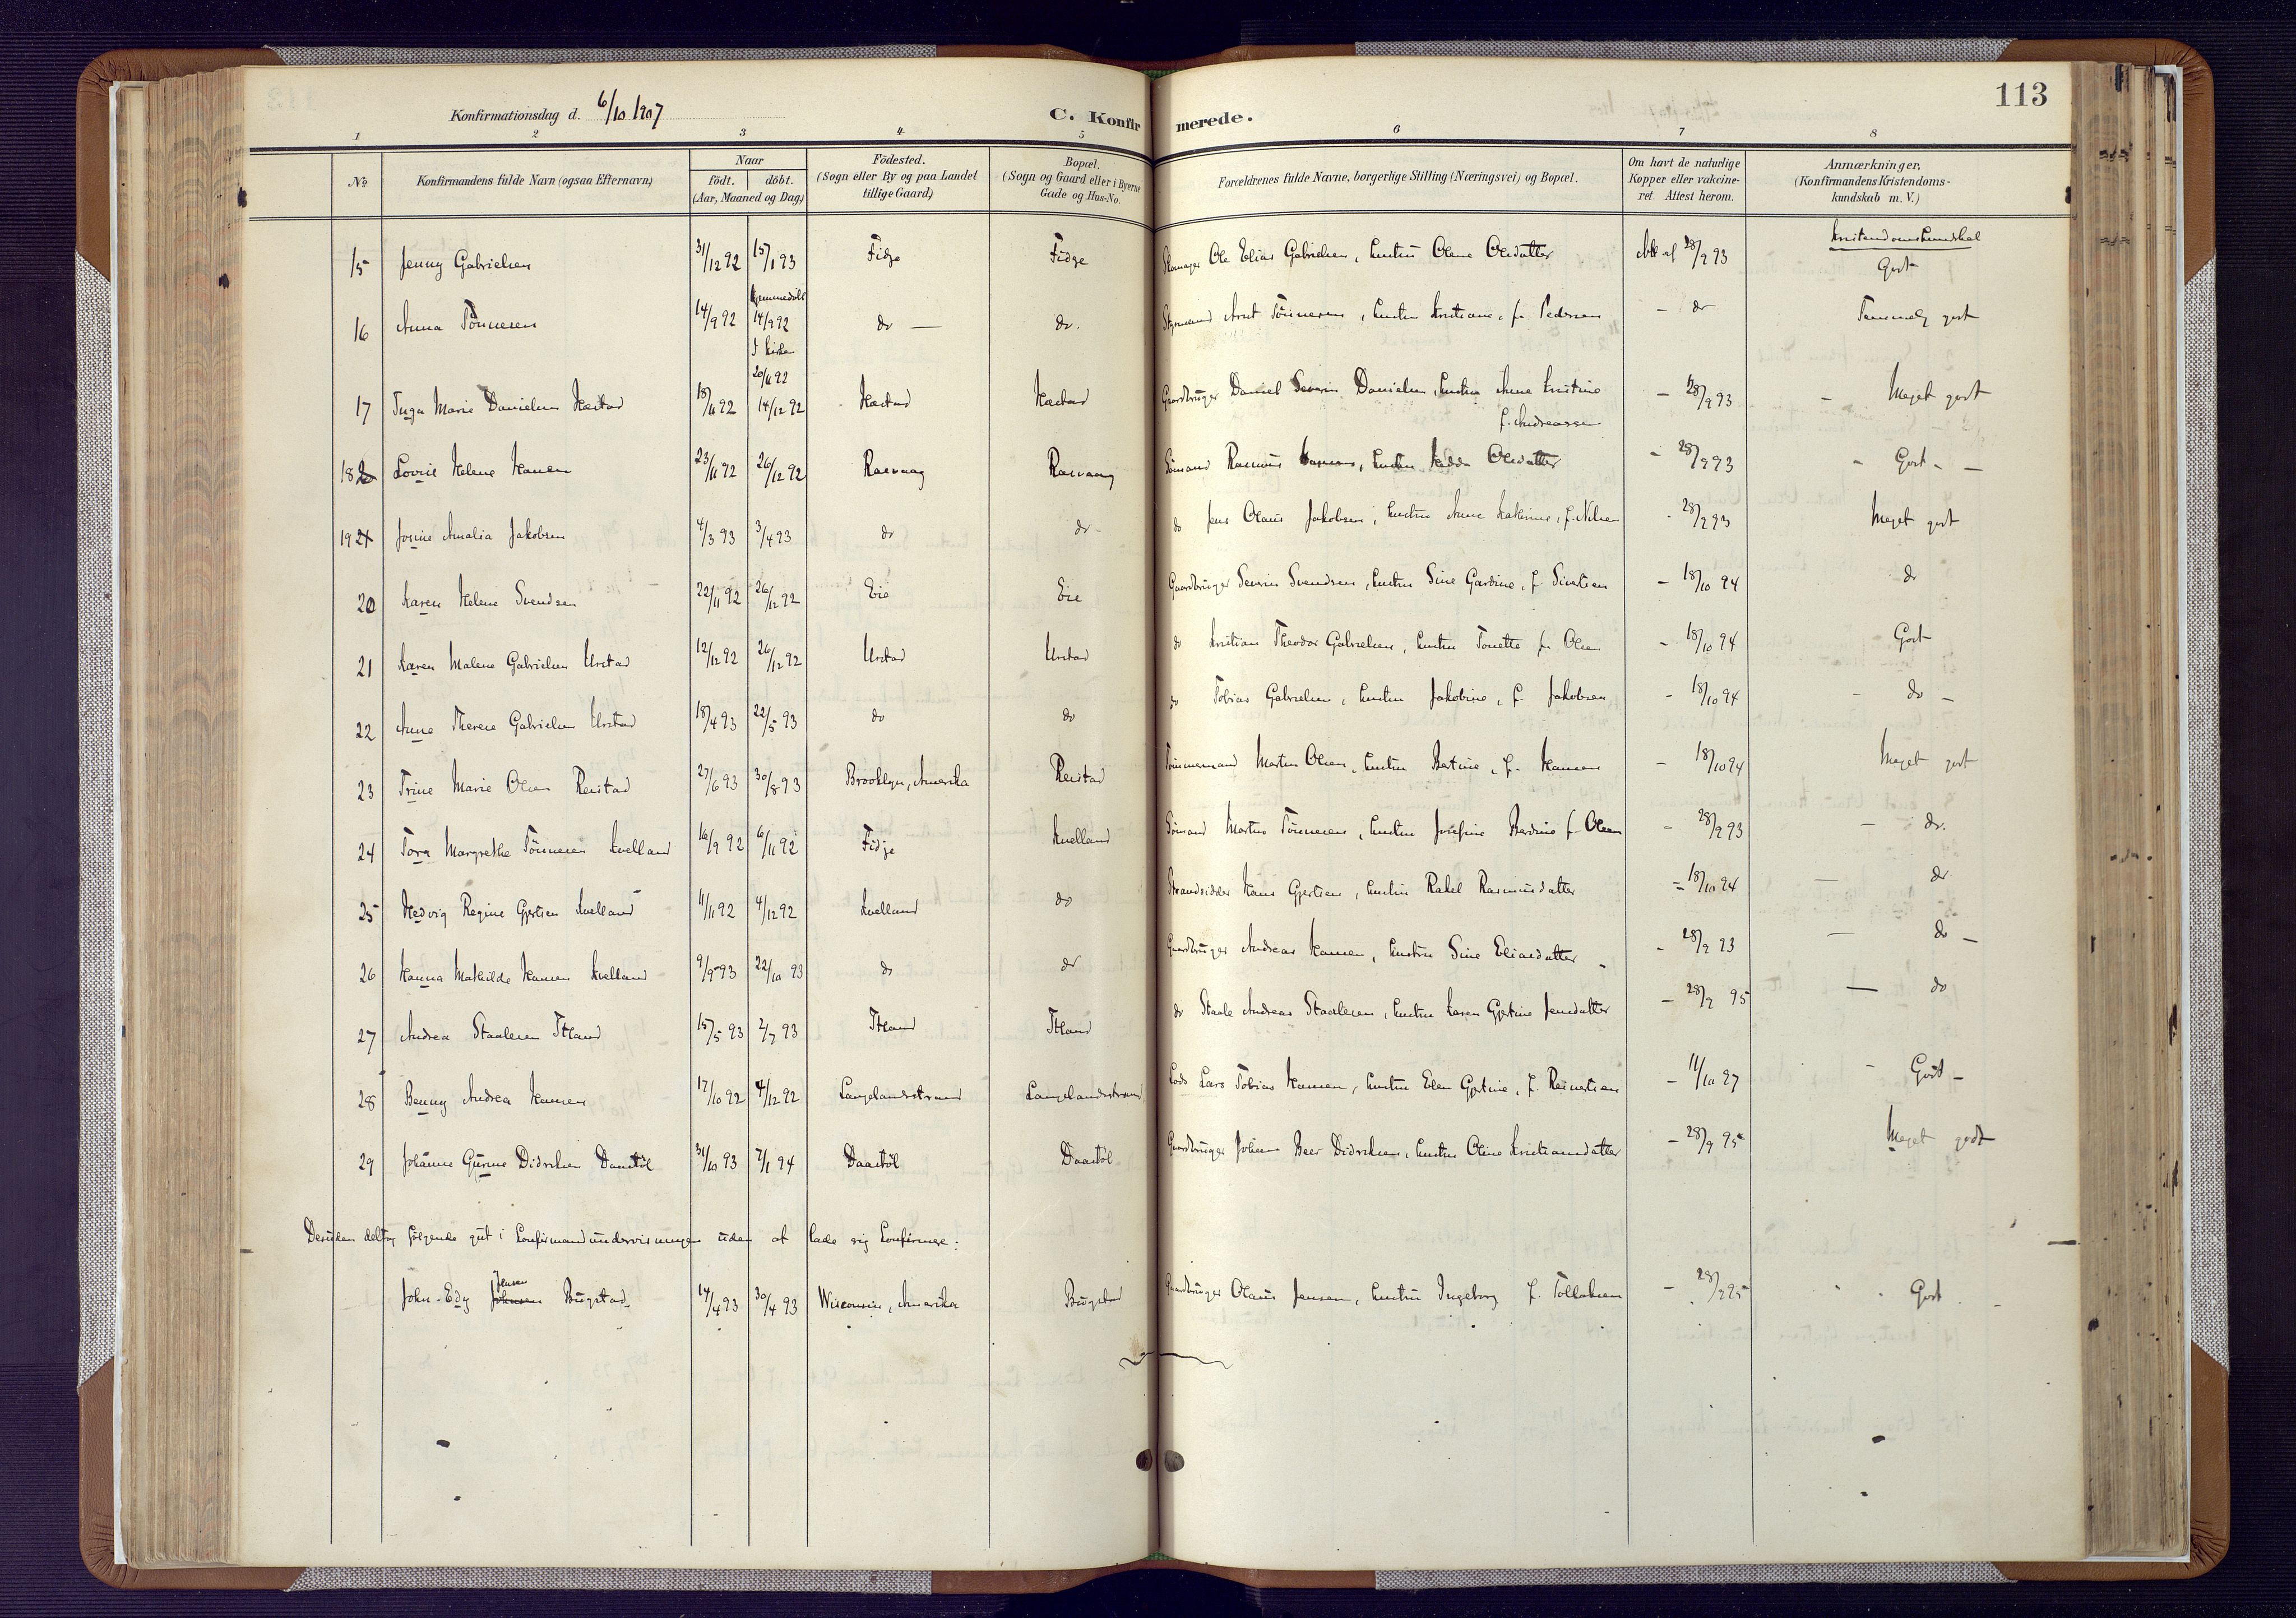 113
Konfirmationsdag d. 6/10 1907
C. Konfirmerede.
1 2 3 4 5 6 7 8
No
Konfirmandens fulde Navn (ogsaa Efternavn)
Naar
födt. döbt.
(Aar, Maaned og Dag)
Födested.
(Sogn eller By og paa Landet
tillige Gaard)
Bopæl.
(Sogn og Gaard eller i Byerne
Gade og Hus-No.
Forældrenes fulde Navne, borgerlige Stilling (Næringsvei) og Bopæl.
Om havt de naturlige
Kopper eller vakcine-
ret. Attest herom.
Anmærkninger,
(Konfirmandens Kristendoms-
kundskab m. V.)
Kristendomskundskab
15 Jenny Gabrielsen 31/12 92 15/1 93 Fidje Fidje Skomager Ole Elias Gabrielsen, hustru Olene Olsdatter Att. af 28/9 93 Godt
16 Anna Tönnesen 14/9 92 Hjemmedöbt 14/9 92 I kirken 20/11 92 do — do. Styrmand Arnt Tönnesen, hustru Kristiane, f. Pedersen - do Temmelig godt
17 Inga Marie Danielsen Hæstad 18/11 92 14/12 92 Hæstad Hæstad Gaardbruger Daniel Severin Danielsen, hustru Anne Kristine f. Andreassen - 28/9 93 - Meget godt
18 Lovise Helene Hansen 23/11 92 26/12 92 Rasvaag Rasvaag Sömand Rasmus Hansen, hustru Hedda Olsdatter - 28/9 93 - Godt - —
19 Josine Amalia Jakobsen 4/3 93 3/4 93 do do - do Jens Olaus Jakobsen, hustru Anne Kathrine, f. Nilsen - 28/9 93 Meget godt
20 Karen Helene Svendsen 22/11 92 26/12 92 Eie Eie Gaardbruger Severin Svendsen, hustru Sine Gardine, f. Sivertsen - 18/10 94 do
21 Karen Malene Gabrielsen Urstad 12/12 92 26/12 92 Urstad Urstad do Kristian Theodor Gabrielsen, hustru Tonette f. Olsen - 18/10 94 Godt
22 Anne Therese Gabrielsen Urstad 18/4 93 22/5 93 do do do Tobias Gabrielsen, hustru Jakobine, f. Jakobsen - 18/10 94 - do -
23 Trine Marie Olsen Restad 27/6 93 30/8 93 Brooklyn, Amerika Restad Tömmermand Martin Olsen, hustru Bertine, f. Hansen - 18/10 94 Meget godt
24 Tora Margrethe Tönnesen Kvelland 16/9 92 6/11 92 Fidje Kvelland Sömand Martin Tönnesen, hustru Josefine Berdine f. Olsen - 28/9 93 - do.
25 Hedvig Regine Gjertsen Kvelland 11/11 92 4/12 92 Kvelland do Strandsidder Hans Gjertsen, hustru Rakel Rasmusdatter - 18/10 94 — do
26 Hanna Mathilde Hansen Kvelland 9/9 93 22/10 93 do do Gaardbruger Andreas Hansen, hustru Sine Eliasdatter - 28/9 93 — do -
27 Andrea Staalesen Itland 15/5 93 2/7 93 Itland Itland do Staale Andreas Staalesen, hustru Karen Gjertine Jensdatter - 28/9 95 — do
28 Benny Andrea Hansen 17/10 92 4/12 92 Langelandsstrand Langelandsstrand Lods Lars Tobias Hansen, hustru Elen Gjertine, f. Reinertsen - 11/10 97 - Godt -
29 Johanne Gurine Didriksen Daastöl 31/10 93 7/1 94 Daastöl Daastöl Gaardbruger Johan Beer Didriksen, hustru Oline Kristiansdatter - 28/9 95 Meget godt
Desuden deltog fölgende gut i Konfirmandundervisningen uden at lade sig konfirmere:
Jensen
John Edy Johnsen Bugstad 14/4 93 30/4 93 Wisconsin, Amerika Bugstad Gaardbruger Olaus Jensen, hustru Ingeborg f. Tollaksen - 28/9 95 - Godt -